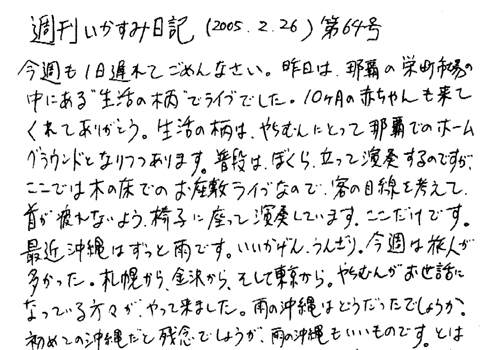 週刊いかすみ日記(2005.2.26)第64号
今週も1日遅れてごめんなさい。昨日は、那覇の栄町市場の
中にある"生活の柄"でライブでした。10ヶ月の赤ちゃんも来て
くれてありがとう。生活の柄は、やちむんにとって那覇でのホーム
グラウンドとなりつつあります。普段は、ぼくら、立って演奏するのですが、
ここでは木の床でのお座敷ライブなので、客の目線を考えて、
首が疲れないよう、椅子に座って演奏しています。ここだけです。
最近沖縄はずっと雨です。いいかげん、うんざり。今週は旅人が
多かった。札幌から、金沢から、そして東京から。やちむんがお世話に
なっている方々が、やって来ました。雨の沖縄はどうだったでしょうか?
初めての沖縄だと残念でしょうが、雨の沖縄もいいものです。とは